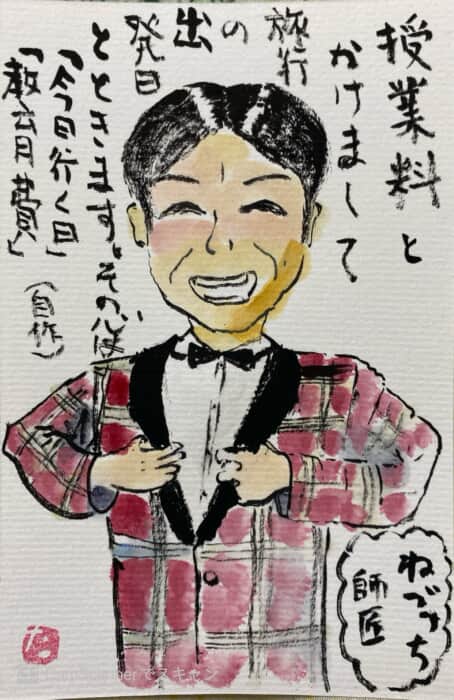 授業料と
かけまして
旅行
の
出
発日
とときます。その心は
「今日行く日」
「教育費」
（自作）
ねづっち
師匠